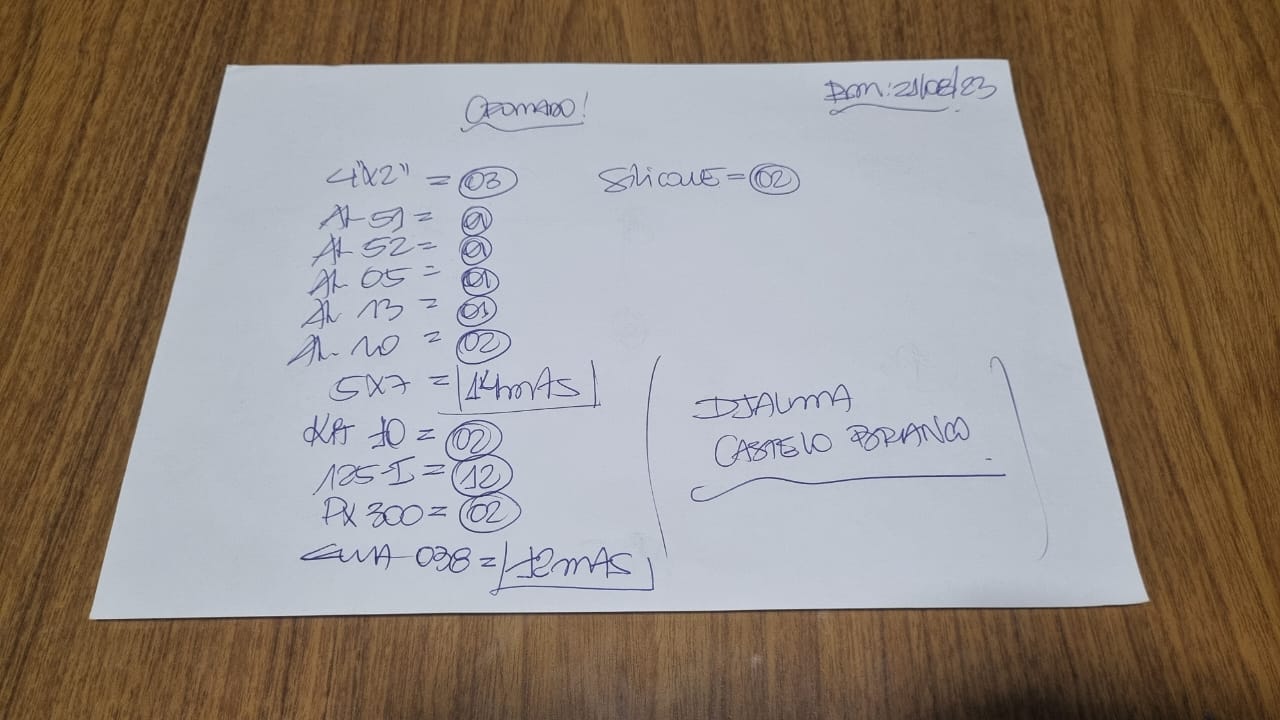 CROMADO!
Bcm: 21/08/23
4"x2" = 03
Silicone = 02
AL 51 = 01
AL 52 = 01
AL 05 = 01
AL 13 = 01
AL 10 = 02
5x7 = 14mAS
KA 10 = 02
125-I = 12
PX 300 = 02
038 = 12mAS
DJALMA
CASTELO BRANCO